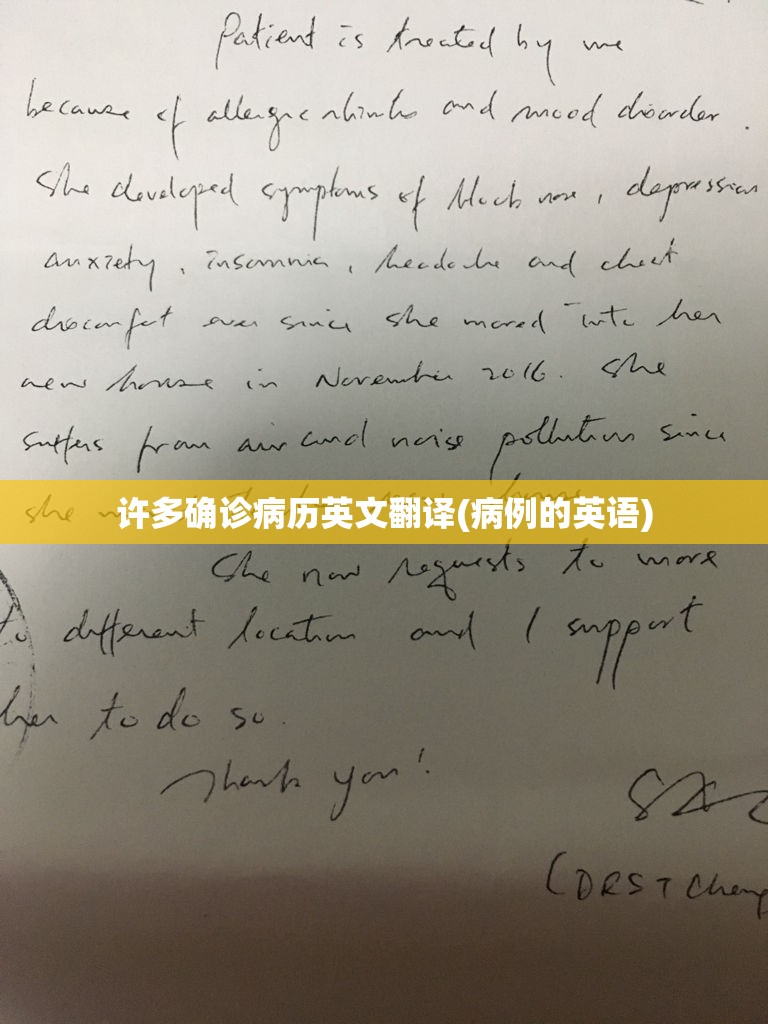 Patient is treated by me
because of allergic rhinitis and mood disorder.
She developed symptoms of block nose, depression
anxiety, insomnia, headache and chest
discomfort ever since she moved into her
new house in November 2016. She
suffers from air and noise pollution since
she
许多确诊病历英文翻译(病例的英语)
She now requests to move
to different location and I support
her to do so.
Thank you!
(DR S T Cheng